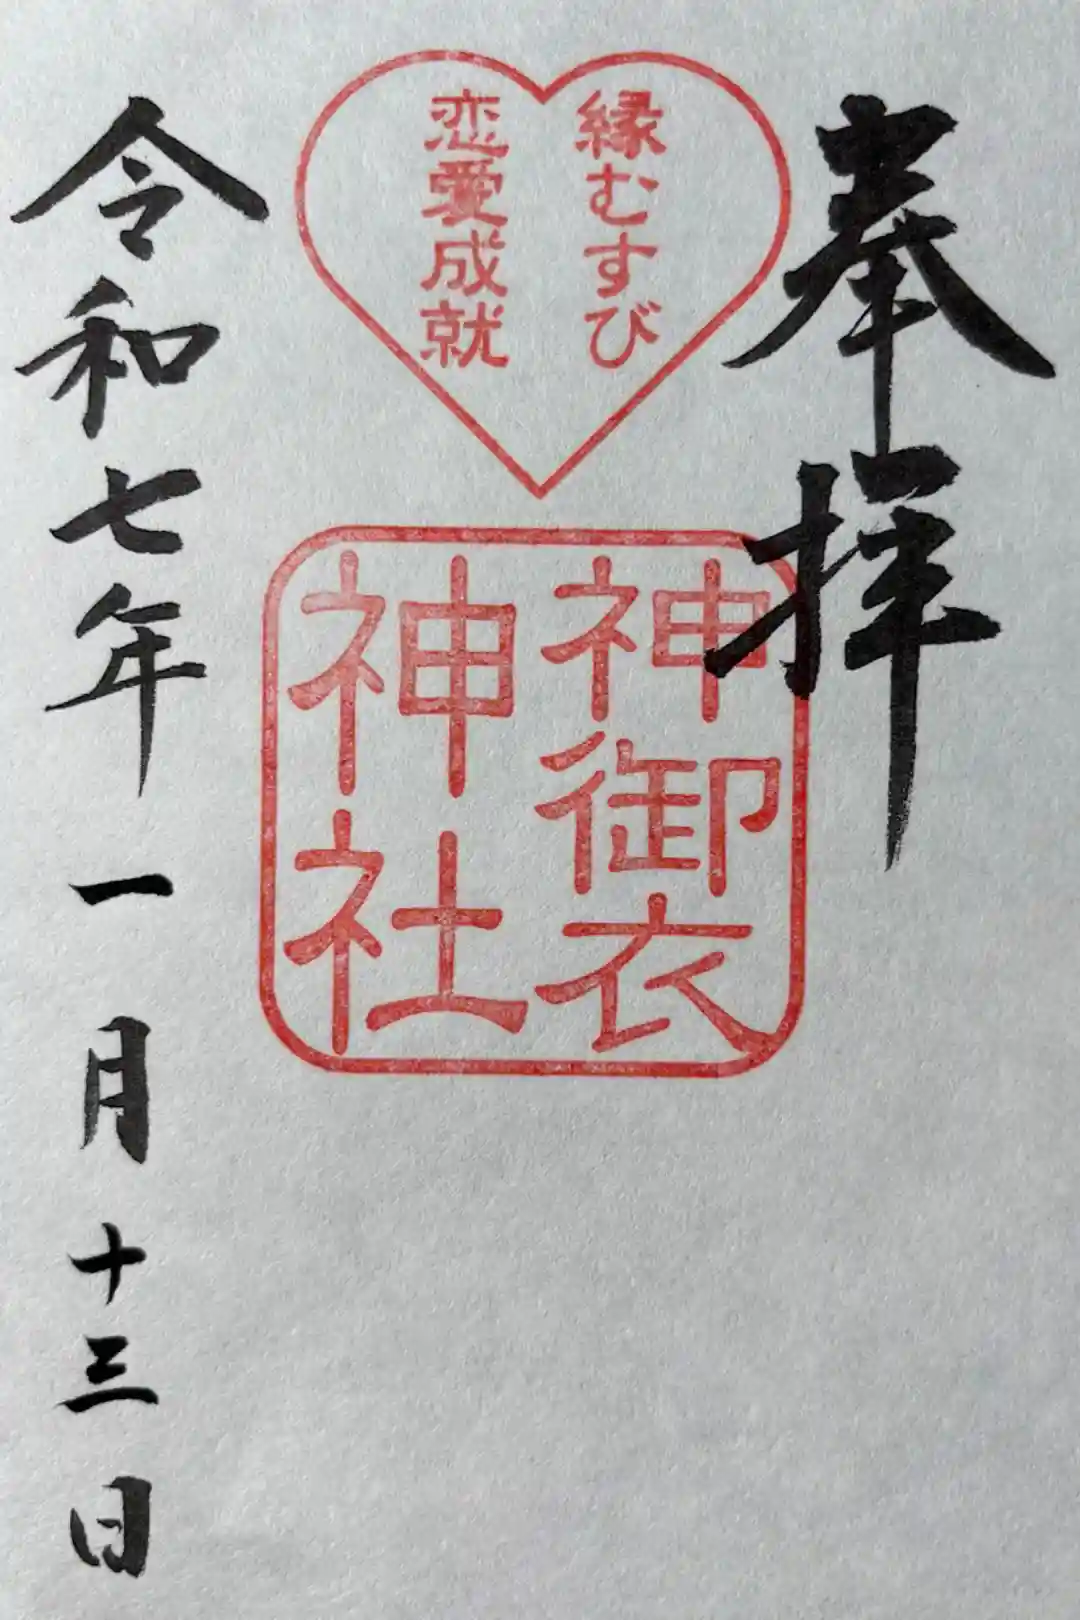 奉拝
縁むすび
恋愛成就
神御衣
神社
令和七年一月十三日